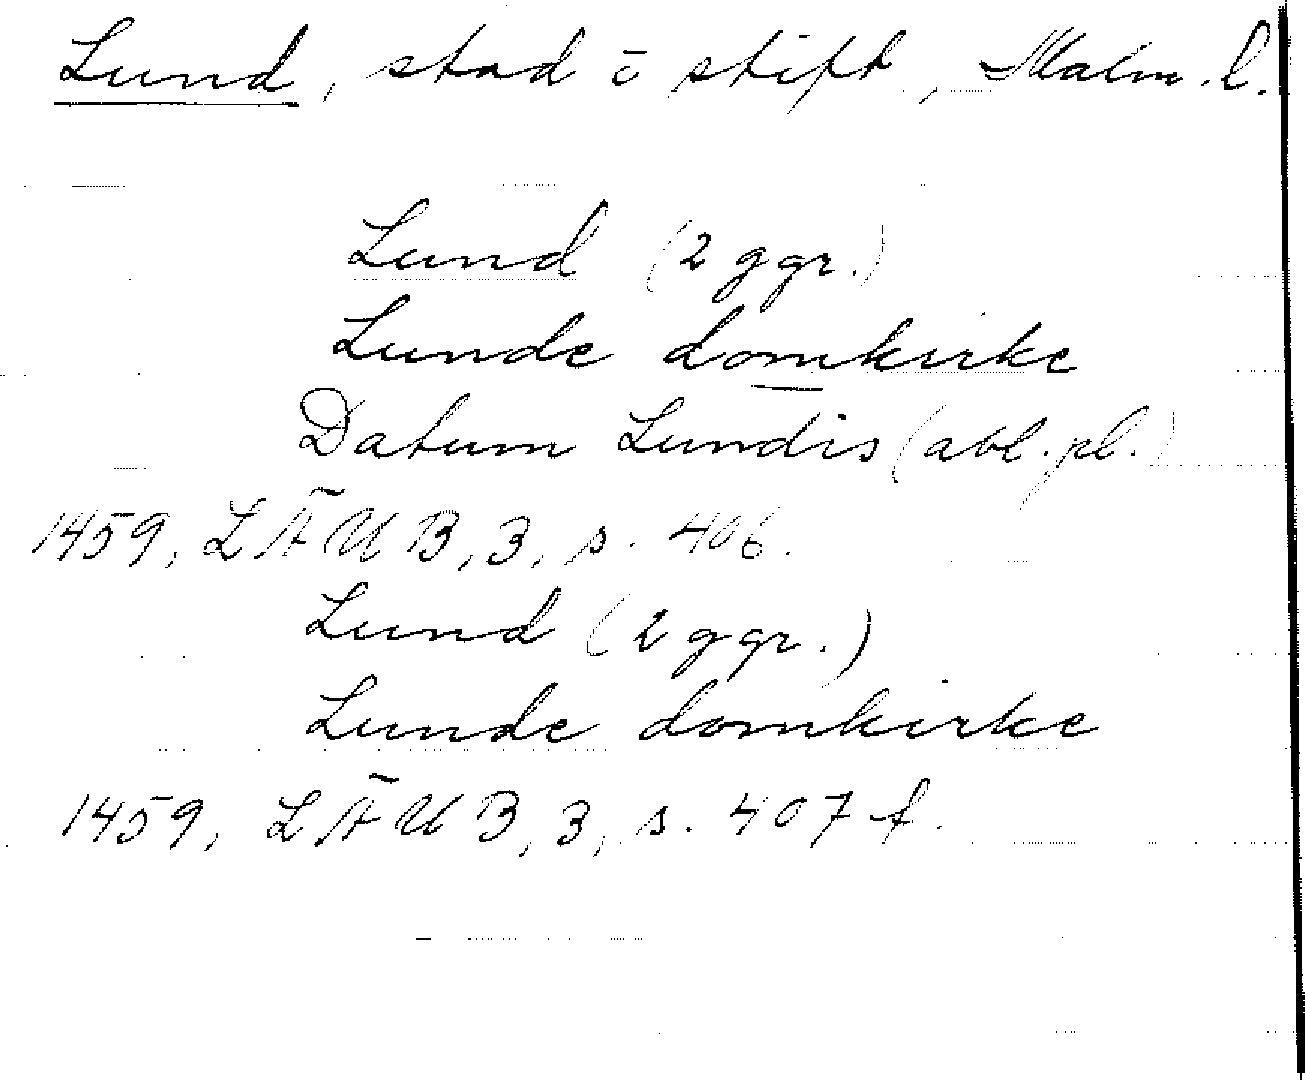 Lund, stad o stift, Malm. l.
Lund (2 ggr.)
Lunde domkirke
Datum Lundis (abl. pl.)
1459, LÄUB, 3, s. 406.
Lund (2 ggr.)
Lunde domkirke
1459, LÄUB, 3, s. 407 f.